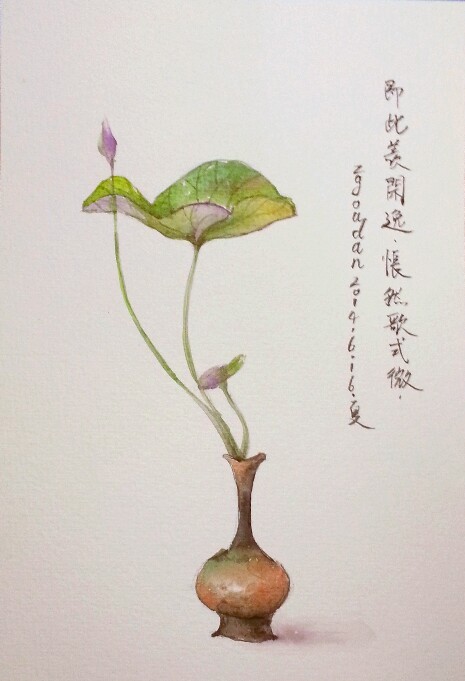 即此羡閑逸．悵然歌式微．
zgoudan 2014.6.16.夏